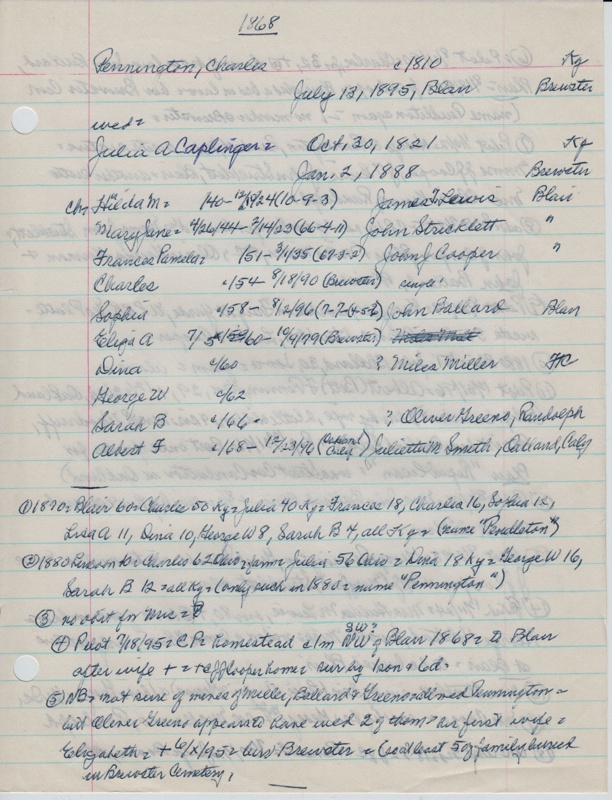 1868
Pennington, Charles c1810 Ky
July 13, 1895, Blair Brewster
wed=
Julia A Caplinger= Oct, 30, 1821 Ky
Jan, 2, 1888 Brewster
ch= Hilda M= 140- 24(10-9-3) James Lewis Blair
Mary Jane= 4/26/44- 7/14/23(66-4-11) John Stricklett "
Frances Pamela= 151- 3/1/35(67-3-2) John J Cooper "
Charles c154- 8/18/90 (Brewster) single
Sophia c158- 8/12/96 John Ballard Blair
Eliza A 7/ 60- 10/4/79(Brewster)
Dina c/60 ? Miles Miller FC
George W c/62
Sarah B c/66- ? Oliver Greeno, Randolph
Albert F c/68- 12/23/96 (Oakland Calif) Julietta M Smith, Oakland, Calif
① 1870= Blair 60= Charles 50 Ky= Julia 40 Ky= Frances 18, Charles 16, Sophia 12,
Liza A 11, Dina 10, George W 8, Sarah B 4, all Ky= (name "Pendleton")
② 1880 10= Charles 62 Julia 56 = Dina 18 Ky= George W 16,
Sarah B 12= all Ky= (only such in 1880= name "Pennington")
③ no obit for Mrs= P
④ Pilot 7/18/95= CP= homestead c/m SW? NW= Blair 1868= to Blair
after wife + = +c/ JJ Cooper home= sur by 1 son & 6 d=
⑤ NB= not sure of mines of Miller, Ballard & Greeno all wed Pennington=
but Oliver Greeno appears to have wed 2 of them= his first wife=
Elizabeth= + 6/x/95= bur Brewster= (so at least 5 of family buried
in Brewster Cemetery,